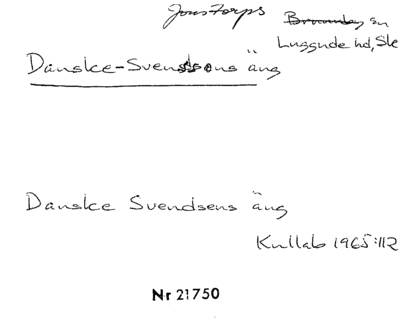 Jonstorps B̶r̶u̶n̶n̶b̶y̶ sn
Luggude hd, Sk
Danske-Svendsens äng
Danske Svendsens äng
Kullab 1965:112
Nr 21750